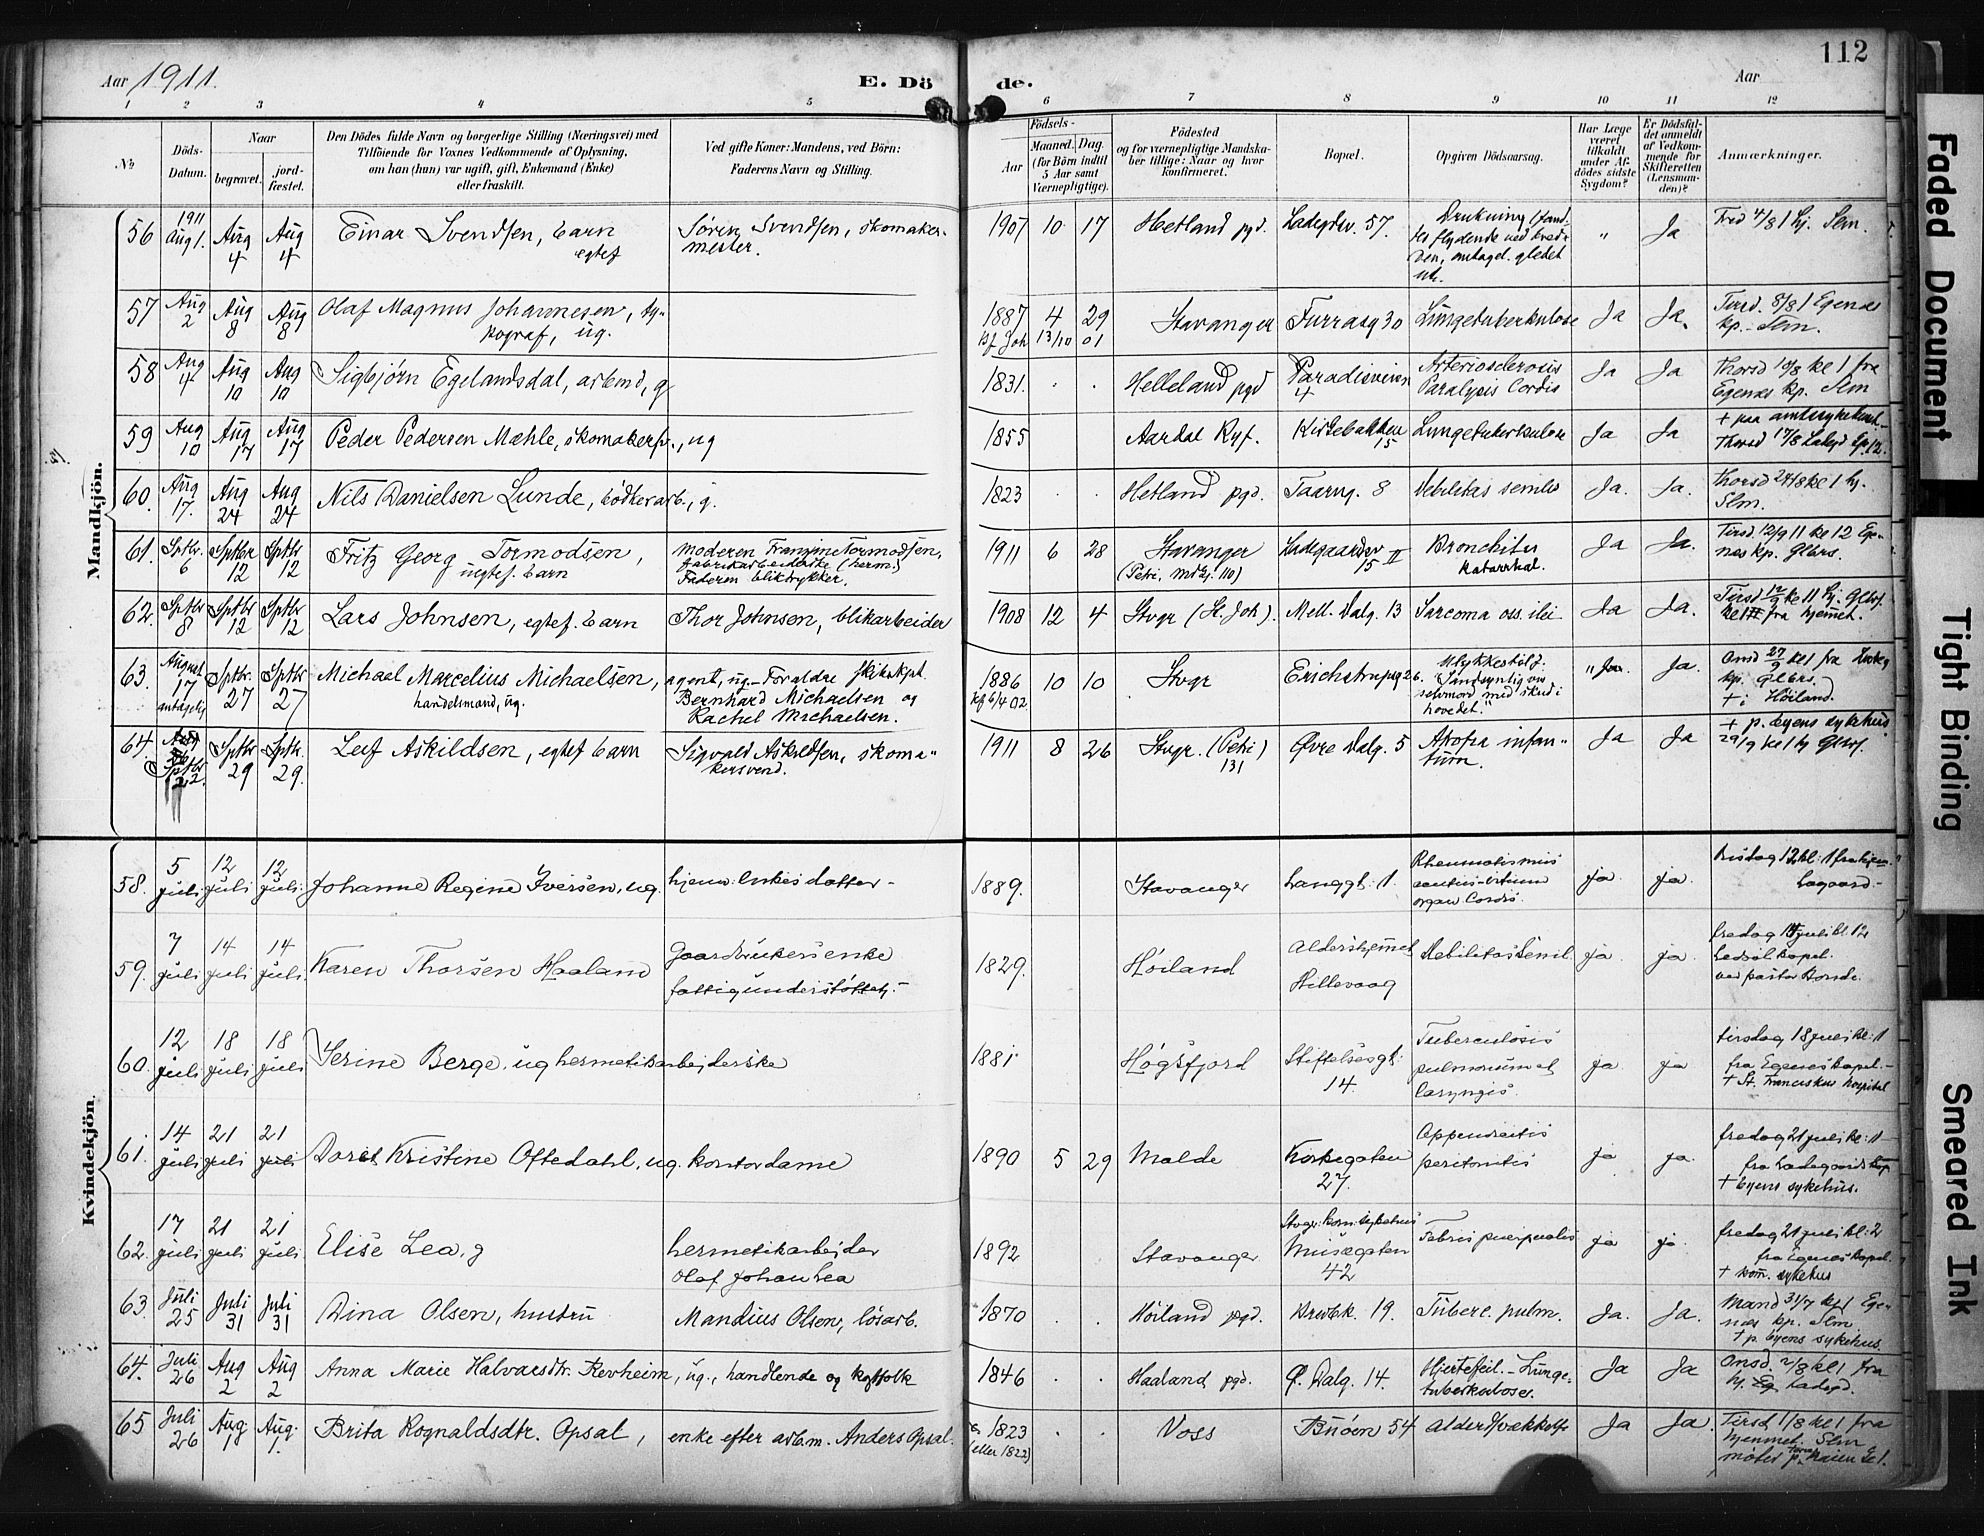 112
Aar 1911.
E. Dö de.
Aar
1 2 3 4 5 6 7 8 9 10 11 12
No
Döds-
Datum.
Naar
begravet.
jord-
fæstet.
Den Dödes fulde Navn og borgerlige Stilling (Næringsvei) med
Tilföiende for Voxnes Vedkommende af Oplysning,
om han (hun) var ugift, gift, Enkemand (Enke)
eller fraskilt.
Ved gifte Koner: Mandens, ved Börn:
Faderens Navn og Stilling.
Födsels-
Aar
Maaned. Dag.
(for Börn indtil
5 Aar samt
Værnepligtige).
Födested
og for værnepligtige Mandska-
ber tillige: Naar og hvor
konfirmeret.
Bopæl.
Opgiven Dödsaarsag.
Har Læge
været
tilkaldt
under Af-
dödes sidste
Sygdom?
Er Dödsfal-
det anmeldt
af Vedkom-
mende for
Skifteretten
(Lensman-
den)?
Anmærkninger.
Mandkjön.
56 1911 Aug 1. Aug 4 Aug 4 Einar Svendsen, barn egtef Søren Svendsen, skomaker-
mester. 1907 10 17 Hetland pgd. Ladegdsv. 57. Drukning (fand.
tes flydende ved bred-
den, antagel. gledet
ut. " Ja Fred 4/8 1 hj. Slm.
57 Aug 2 Aug 8 Aug 8 Olaf Magnus Johannesen, ty-
pograf, ug. 1887 4 29 Stavanger Furrasg 30 Lungetuberkulose Ja Ja. Tirsd. 8/8 1 Egenæs
kf. Joh 13/10 01 kp. - Slm.
58 Aug 4 Aug 10 Aug 10 Sigbjørn Egelandsdal, arbmd, g 1831. . . Helleland pgd Paradisveien
4 Arteriosclerosis
Paralysis Cordis Ja Ja Thorsd 10/8 kl 1 fra
Egenæs kp. Slm
59 Aug 10 Aug 17 Aug 17 Peder Pedersen Mæhle, skomakersv., ug 1855 Aardal Ryf. Kirkebakken
15 Lungetuberkulose Ja Ja + paa amtssykehuset
Thorsd 17/8 Ladegd kp. 12.
60. Aug 17. Aug 24 Aug 24 Nils Danielsen Lunde, bødkerarb., g. 1823 . . Hetland pgd. Taarng. 8 Debilitas senilis Ja. Ja. Thorsd 24/8 kl 1 hj.
Slm.
61. Sptbr. 6 Sptbr 12 Sptbr 12 Fritz Georg Tormodsen,
uegtef. barn moderen Franzine Tormodsen,
fabrikarbeiderske (herm.)
Faderen bliktrykker. 1911 6 28 Stavanger
(Petri, 110) Ladegaardsv
5 II Bronchitis
katarrhal. Ja Ja. Tirsd 12/9 11 kl 12 Ege-
næs kp. Glbrs.
62. Sptbr 8 Sptbr 12 Sptbr 12 Lars Johnsen, egtef. barn Thor Johnsen, blikarbeider 1908 12 4 Stvgr (St. Joh). Mell. Dalg. 13 Sarcoma oss. ilei Ja Ja. Tirsd 12/9 kl 11 hj. Glbrf.
fra hjemmet.
63. August 17 antagelig Sptbr. 27 Sptbr 27 Michael Marcelius Michaelsen, agent, ug. Foraldre skibskpt.
handelsmand, ug. Bernhard Michaelsen og
Rachel Michaelsen. 1886 10 10 Stvgr Erichstrupsg 26. Ulykkestilf.
kf 6/4 02 "Sandsynligvis
selvmord med skud i
hovedet." " Ja Ja. Onsd 27/9 kl 1 fra Ladeg
kp. Glbrs.
+ i Høiland.
64. Sptbr 22. Sptbr 29 Sptbr. 29. Leif Askildsen, egtef barn Sigvald Askildsen, skoma-
kersvend. 1911 8 26 Stvgr. (Petri)
131 Øvre Dalg. 5 Atrofia infan-
tum. Ja Ja + p. byens sykehus
29/9 kl 1 hj Glbrf.
Kvindekjön.
58. 5 juli 12 juli 12 juli Johanne Regine Iversen, ug. hjemv. enkes datter - 1889. Stavanger Langgt: 1. Rheumatismus
acutus - vitium
organ. Cordis. ja. ja. onsdag 12 kl: 1 fra hjem.
Lagaard. -
59. 7 juli 14 juli 14 juli Karen Thorsen Haaland Gaardbrukersenke
fattigunderstøttet. - 1829. Høiland Aldershjemet
Hillevaag Debilitas Senil. ja ja. fredag 14 juli kl. 12
Ledsöl Kapel.
ved pastor Honde.
60. 12 juli 18 juli 18 juli Serine Berge, ug hermetikarbejderske 1881 Høgsfjord Stiftelsesgt:
14. Tuberculosis
pulmonum et
laryngis. ja ja tirsdag 18 juli kl: 1
fra Egenes kapel. -
+ St. Franciskus hospital
61. 14 juli 21 juli 21 juli Doret Kristine Oftedahl, ug. kontordame 1890 5 29 Molde Kirkegaten
27. Appendicitis
peritonitis ja ja. fredag 21 juli kl: 1 -
fra Ladegaards kap
+ byens sykehus.
62. 17 juli 21 juli 21 juli Elise Lea, g hermetikarbejder
Olaf Johan Lea 1892 Stavanger Stvgr: kom: sykehus
Musægaten
42 Febris puerpualis ja ja. fredag 21 juli kl: 2
fra Egenes kapel.
+ kom. sykehus
63. Juli 25 Juli 31 Juli 31 Dina Olsen, hustru Mandius Olsen, løsarb. 1870 . . Høiland pgd. Brødbk. 19. Tuberc. pulm. Ja. Ja. Mand 31/7 kl 1 Ege-
næs kp. Slm
+ p. byens sykehus.
64. Juli 26 Aug 2 Aug 2 Anna Marie Halvarsdtr. Revheim, ug., handlende og kaffolk 1846 . . Haaland pgd. Ø. Dalg. 14. Hjertefeil. - Lunge-
tuberkulose. Ja Ja Onsd. 2/8 kl 1 fra
hj. Eg Ladegd.
65 Juli 26 Aug 1 Aug. 1. Brita Rognaldsdtr. Opsal, enke efter arb.m. Anders Opsal. 1823
(eller 1822) . . Voss Buøen 54 Alder svækkelse Ja Ja. Tirsd 1/8 kl 1 fra
hjemmet. Slm
møter p. kaien kl 1.
Faded Document
Tight Binding
Smeared Ink